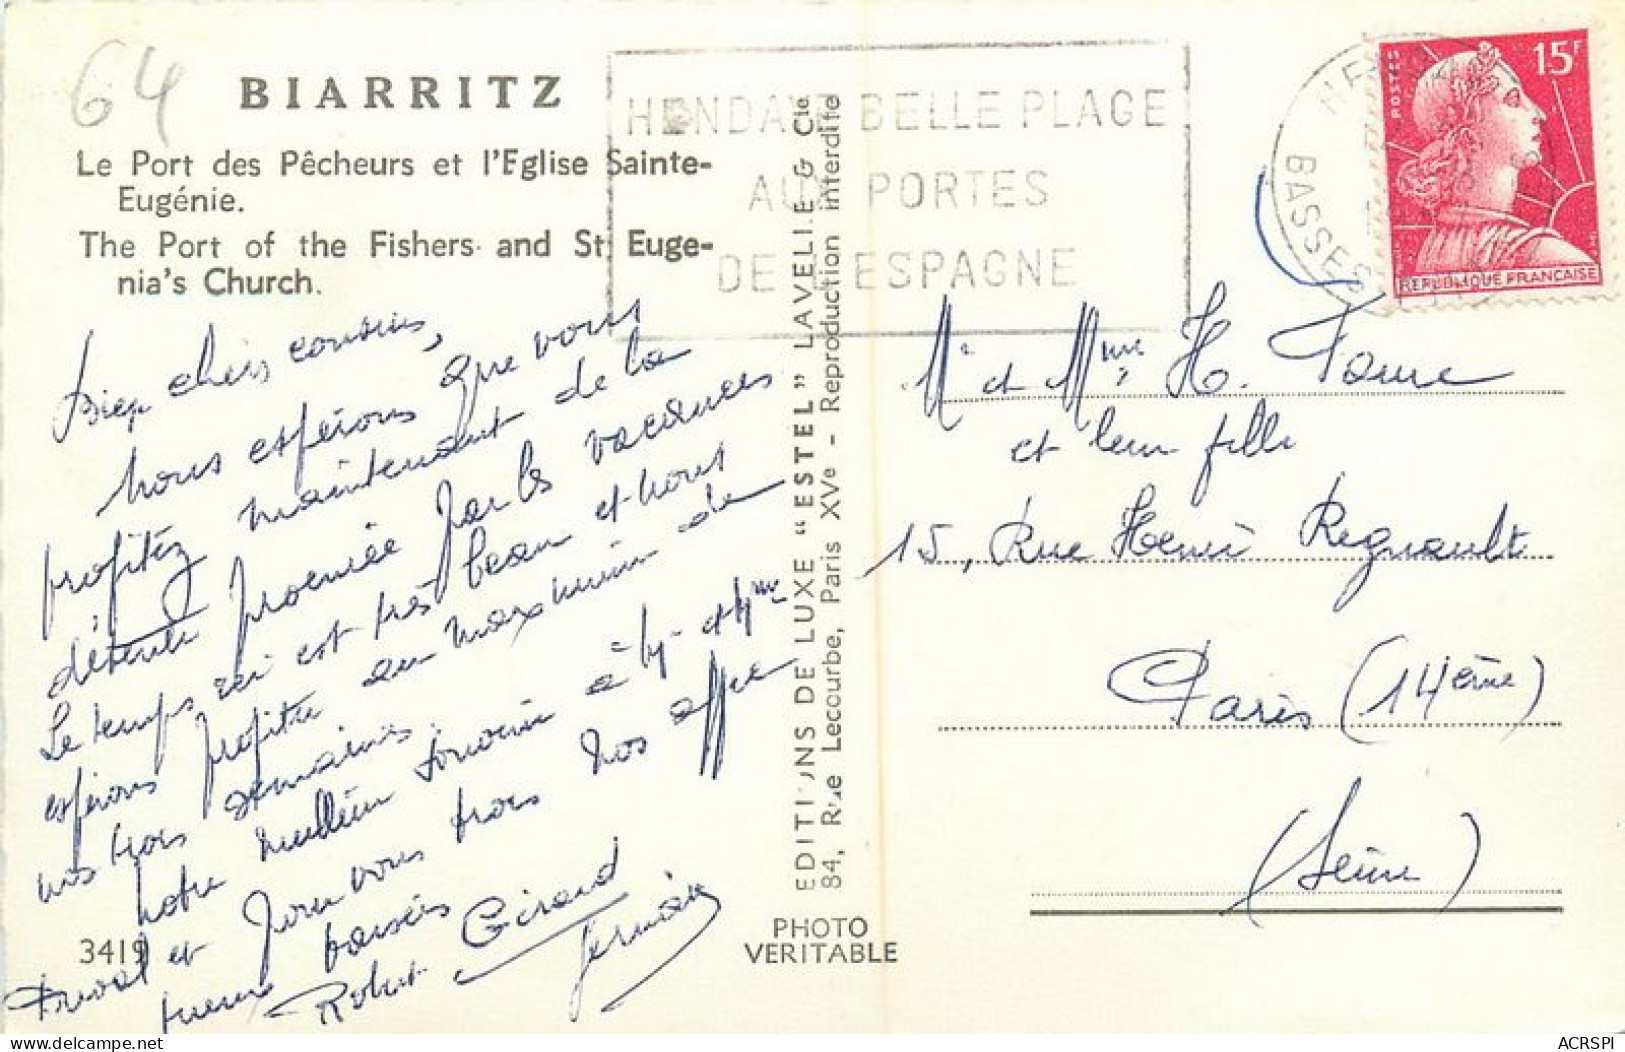 64
BIARRITZ
Le Port des Pêcheurs et l'Eglise Sainte-
Eugénie.
The Port of the Fishers and St Euge-
nia's Church.
HENDAYE BELLE PLAGE
AUX PORTES
DE L'ESPAGNE
BASSES
POSTES
15F
REPUBLIQUE FRANÇAISE
Bien chers cousins,
nous espérons que vous
profitez maintenant de la
détente procurée par les vacances
Le temps ici est très beau et nous
espérons profiter au maximum de
nos trois semaines.
notre meilleur souvenir à Mr et Mme
Duval et pour vous trois nos affec
tueux baisers
Robert Girard
Germaine
3419
EDITIONS DE LUXE "ESTEL" LAVELLE & Cie.
84, Rue Lecourbe, Paris XVe - Reproduction interdite
PHOTO
VERITABLE
Mr et Mme H.
et leur fille
15, Rue Henri Regnault
Paris (14ème)
(Seine)
ACRSPI